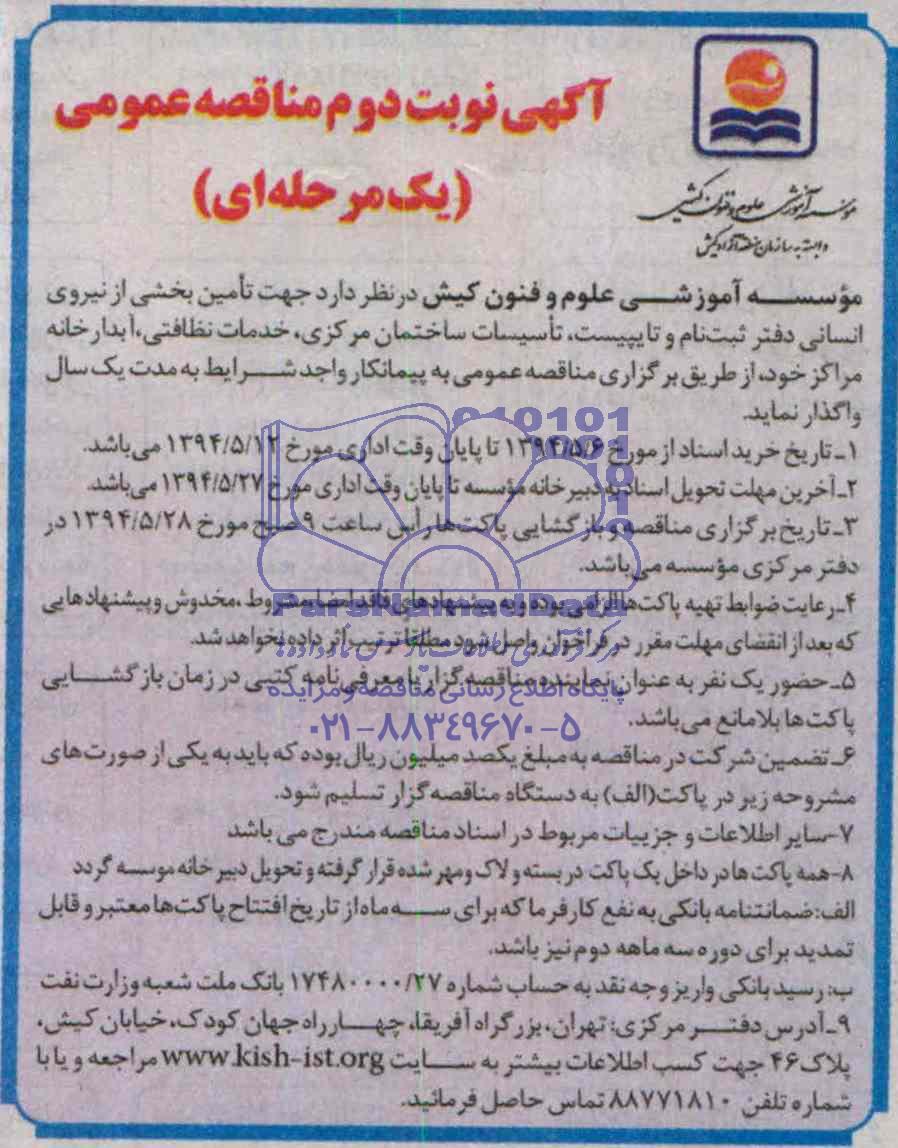 آگهی نوبت دوم مناقصه عمومی
(یک مرحله‌ای)
موسسه آموزشی علوم و فنون کیش
وابسته به سازمان منطقه آزاد کیش
مؤسسه آموزشی علوم و فنون کیش در نظر دارد جهت تأمین بخشی از نیروی
انسانی دفتر ثبت‌نام و تایپیست، تأسیسات ساختمان مرکزی، خدمات نظافتی، آبدارخانه
مراکز خود، از طریق برگزاری مناقصه عمومی به پیمانکار واجد شرایط به مدت یک سال
واگذار نماید.
۱ـ تاریخ خرید اسناد از مورخ ۱۳۹۴/۵/۶ تا پایان وقت اداری مورخ ۱۳۹۴/۵/۱۲ می‌باشد.
۲ـ آخرین مهلت تحویل اسناد به دبیرخانه مؤسسه تا پایان وقت اداری مورخ ۱۳۹۴/۵/۲۷ می‌باشد.
۳ـ تاریخ برگزاری مناقصه و بازگشایی پاکت‌ها رأس ساعت ۹ صبح مورخ ۱۳۹۴/۵/۲۸ در
دفتر مرکزی مؤسسه می‌باشد.
۴ـ رعایت ضوابط تهیه پاکت‌ها الزامی بوده و به پیشنهادهای فاقد امضا، مشروط، مخدوش و پیشنهادهایی
که بعد از انقضای مهلت مقرر در فراخوان واصل شود مطلقا ترتیب اثر داده نخواهد شد.
۵ـ حضور یک نفر به عنوان نماینده مناقصه‌گزار با معرفی‌نامه کتبی در زمان بازگشایی
پاکت‌ها بلامانع می‌باشد.
۶ـ تضمین شرکت در مناقصه به مبلغ یکصد میلیون ریال بوده که باید به یکی از صورت‌های
مشروحه زیر در پاکت (الف) به دستگاه مناقصه‌گزار تسلیم شود.
۷-سایر اطلاعات و جزییات مربوط در اسناد مناقصه مندرج می باشد
۸-همه پاکت ها در داخل یک پاکت در بسته و لاک و مهر شده قرار گرفته و تحویل دبیر خانه موسسه گردد
الف: ضمانتنامه بانکی به نفع کارفرما که برای سه ماه از تاریخ افتتاح پاکت‌ها معتبر و قابل
تمدید برای دوره سه ماهه دوم نیز باشد.
ب: رسید بانکی واریز وجه نقد به حساب شماره ۱۷۴۸۰۰۰۰/۲۷ بانک ملت شعبه وزارت نفت
۹ـ آدرس دفتر مرکزی: تهران، بزرگراه آفریقا، چهارراه جهان کودک، خیابان کیش،
پلاک ۴۶ جهت کسب اطلاعات بیشتر به سایت www.kish-ist.org مراجعه و یا با
شماره تلفن ۸۸۷۷۱۸۱۰ تماس حاصل فرمائید.
ParsNamadData
پایگاه اطلاع رسانی مناقصه و مزایده
۰۲۱-۸۸۳۴۹۶۷۰-۵